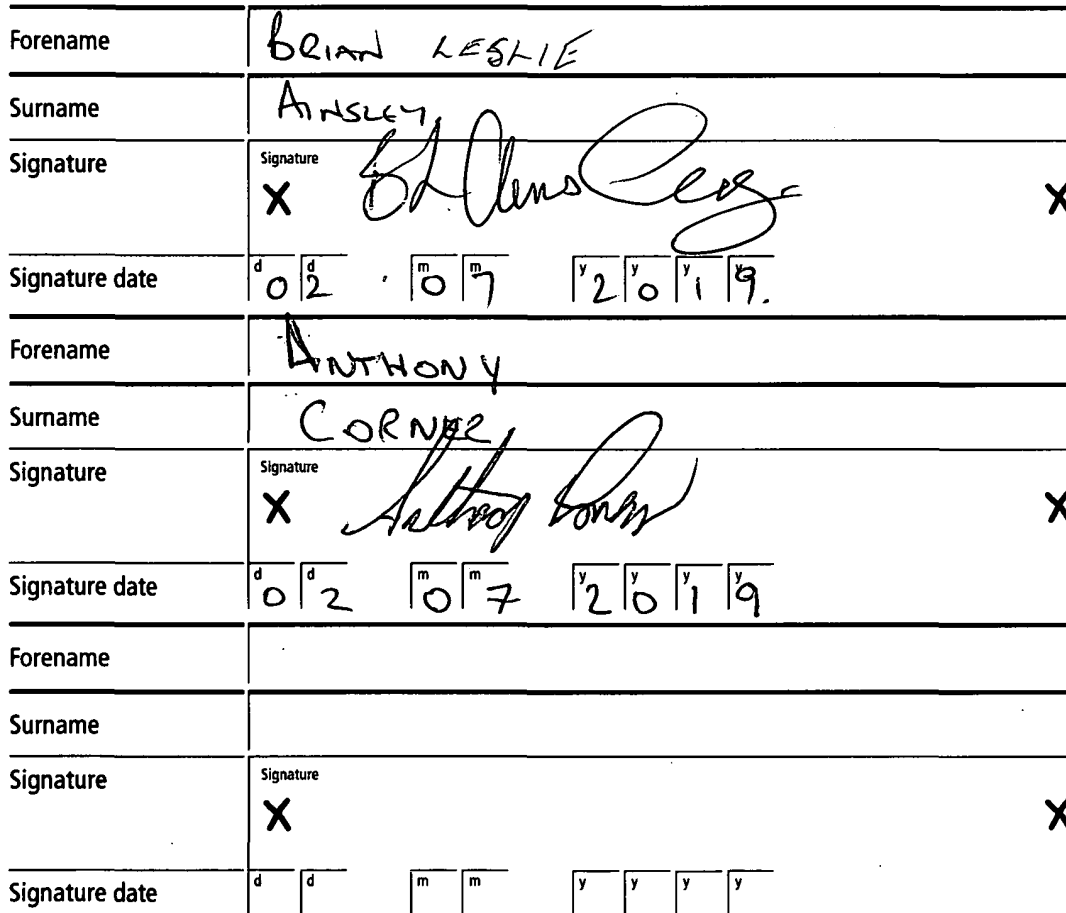 Forename BRIAN LESLIE
Surname AINSLEY
Signature Signature
X B L Ainsley X
Signature date d 0 d 2 m 0 m 7 y 2 y 0 y 1 y 9.
Forename ANTHONY
Surname CORNER
Signature Signature
X Anthony Corner X
Signature date d 0 d 2 m 0 m 7 y 2 y 0 y 1 y 9
Forename
Surname
Signature Signature
X X
Signature date d d m m y y y y